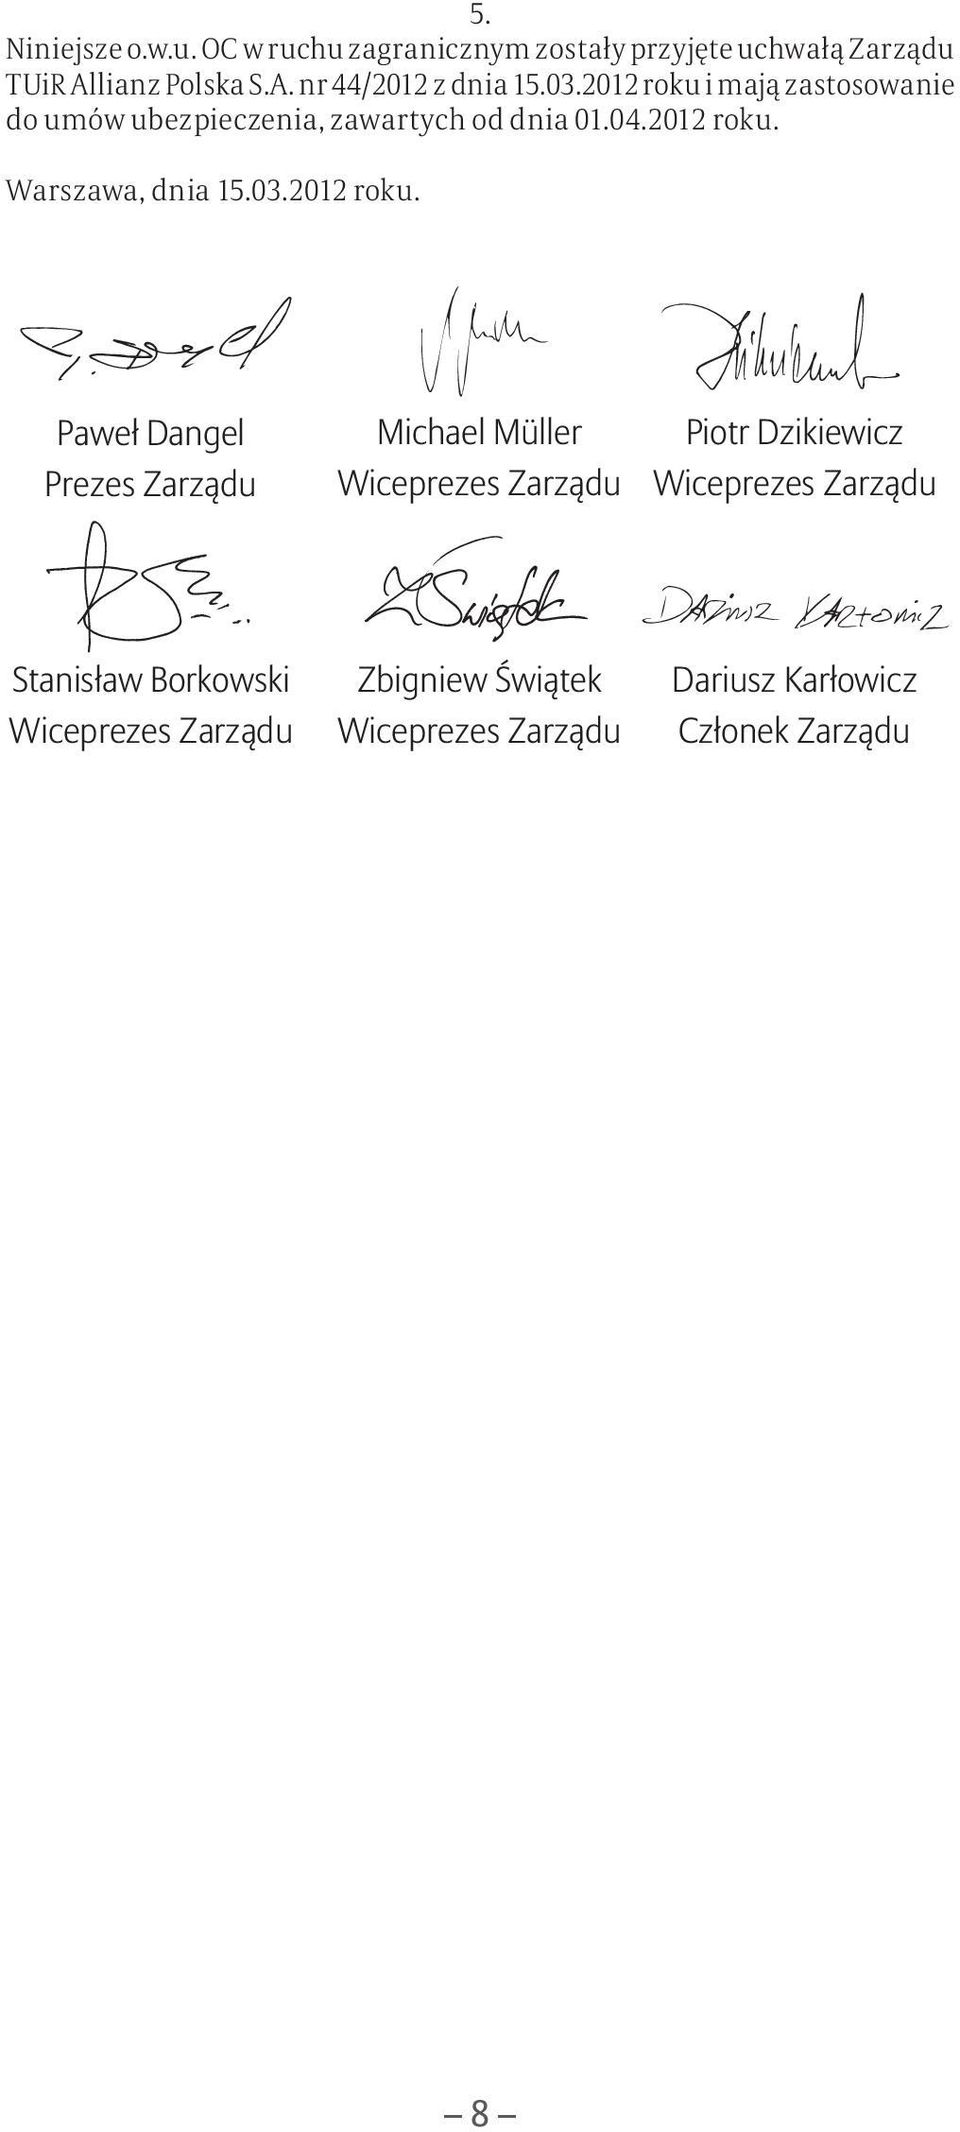 5.
Niniejsze o.w.u. OC w ruchu zagranicznym zostały przyjęte uchwałą Zarządu
TUiR Allianz Polska S.A. nr 44/2012 z dnia 15.03.2012 roku i mają zastosowanie
do umów ubezpieczenia, zawartych od dnia 01.04.2012 roku.
Warszawa, dnia 15.03.2012 roku.
Paweł Dangel Michael Müller Piotr Dzikiewicz
Prezes Zarządu Wiceprezes Zarządu Wiceprezes Zarządu
Stanisław Borkowski Zbigniew Świątek Dariusz Karłowicz
Wiceprezes Zarządu Wiceprezes Zarządu Członek Zarządu
– 8 –